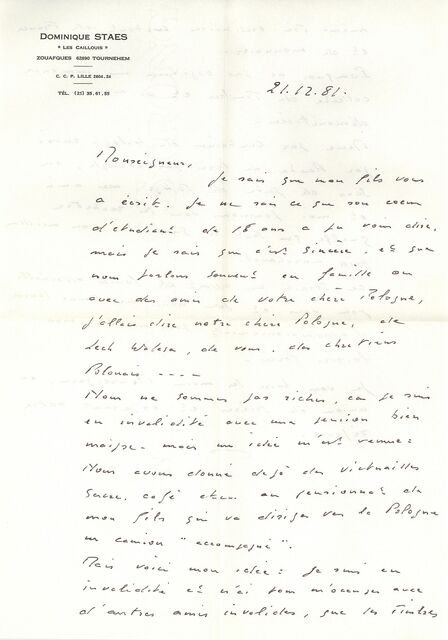 DOMINIQUE STAES
" LES CAILLOUIS "
ZOUAFQUES 62890 TOURNEHEM
C. C. P. LILLE 2604.24
TÉL. (21) 35.61.55
21.12.81.
Monseigneur,
Je sais que mon fils vous
a écrit. Je ne sais ce que son coeur
d'étudiant de 16 ans a pu vous dire,
mais je sais que c'est sincère. et que
nous parlons souvent en famille ou
avec des amis de votre chère Pologne,
j'allais dire notre chère Pologne, de
Lech Walesa, de vous, des chrétiens
Polonais ----
Nous ne sommes pas riches, car je suis
en invalidité avec une pension bien
maigre - mais une idée m'est venue :
Nous avons donné déjà des victuailles
sucre, café etc.. au pensionnat de
mon fils qui va diriger vers la Pologne
un camion " accompagné ".
Mais voici mon idée : Je suis en
invalidité et n'ai pour m'occuper avec
d'autres amis invalides, que les timbres